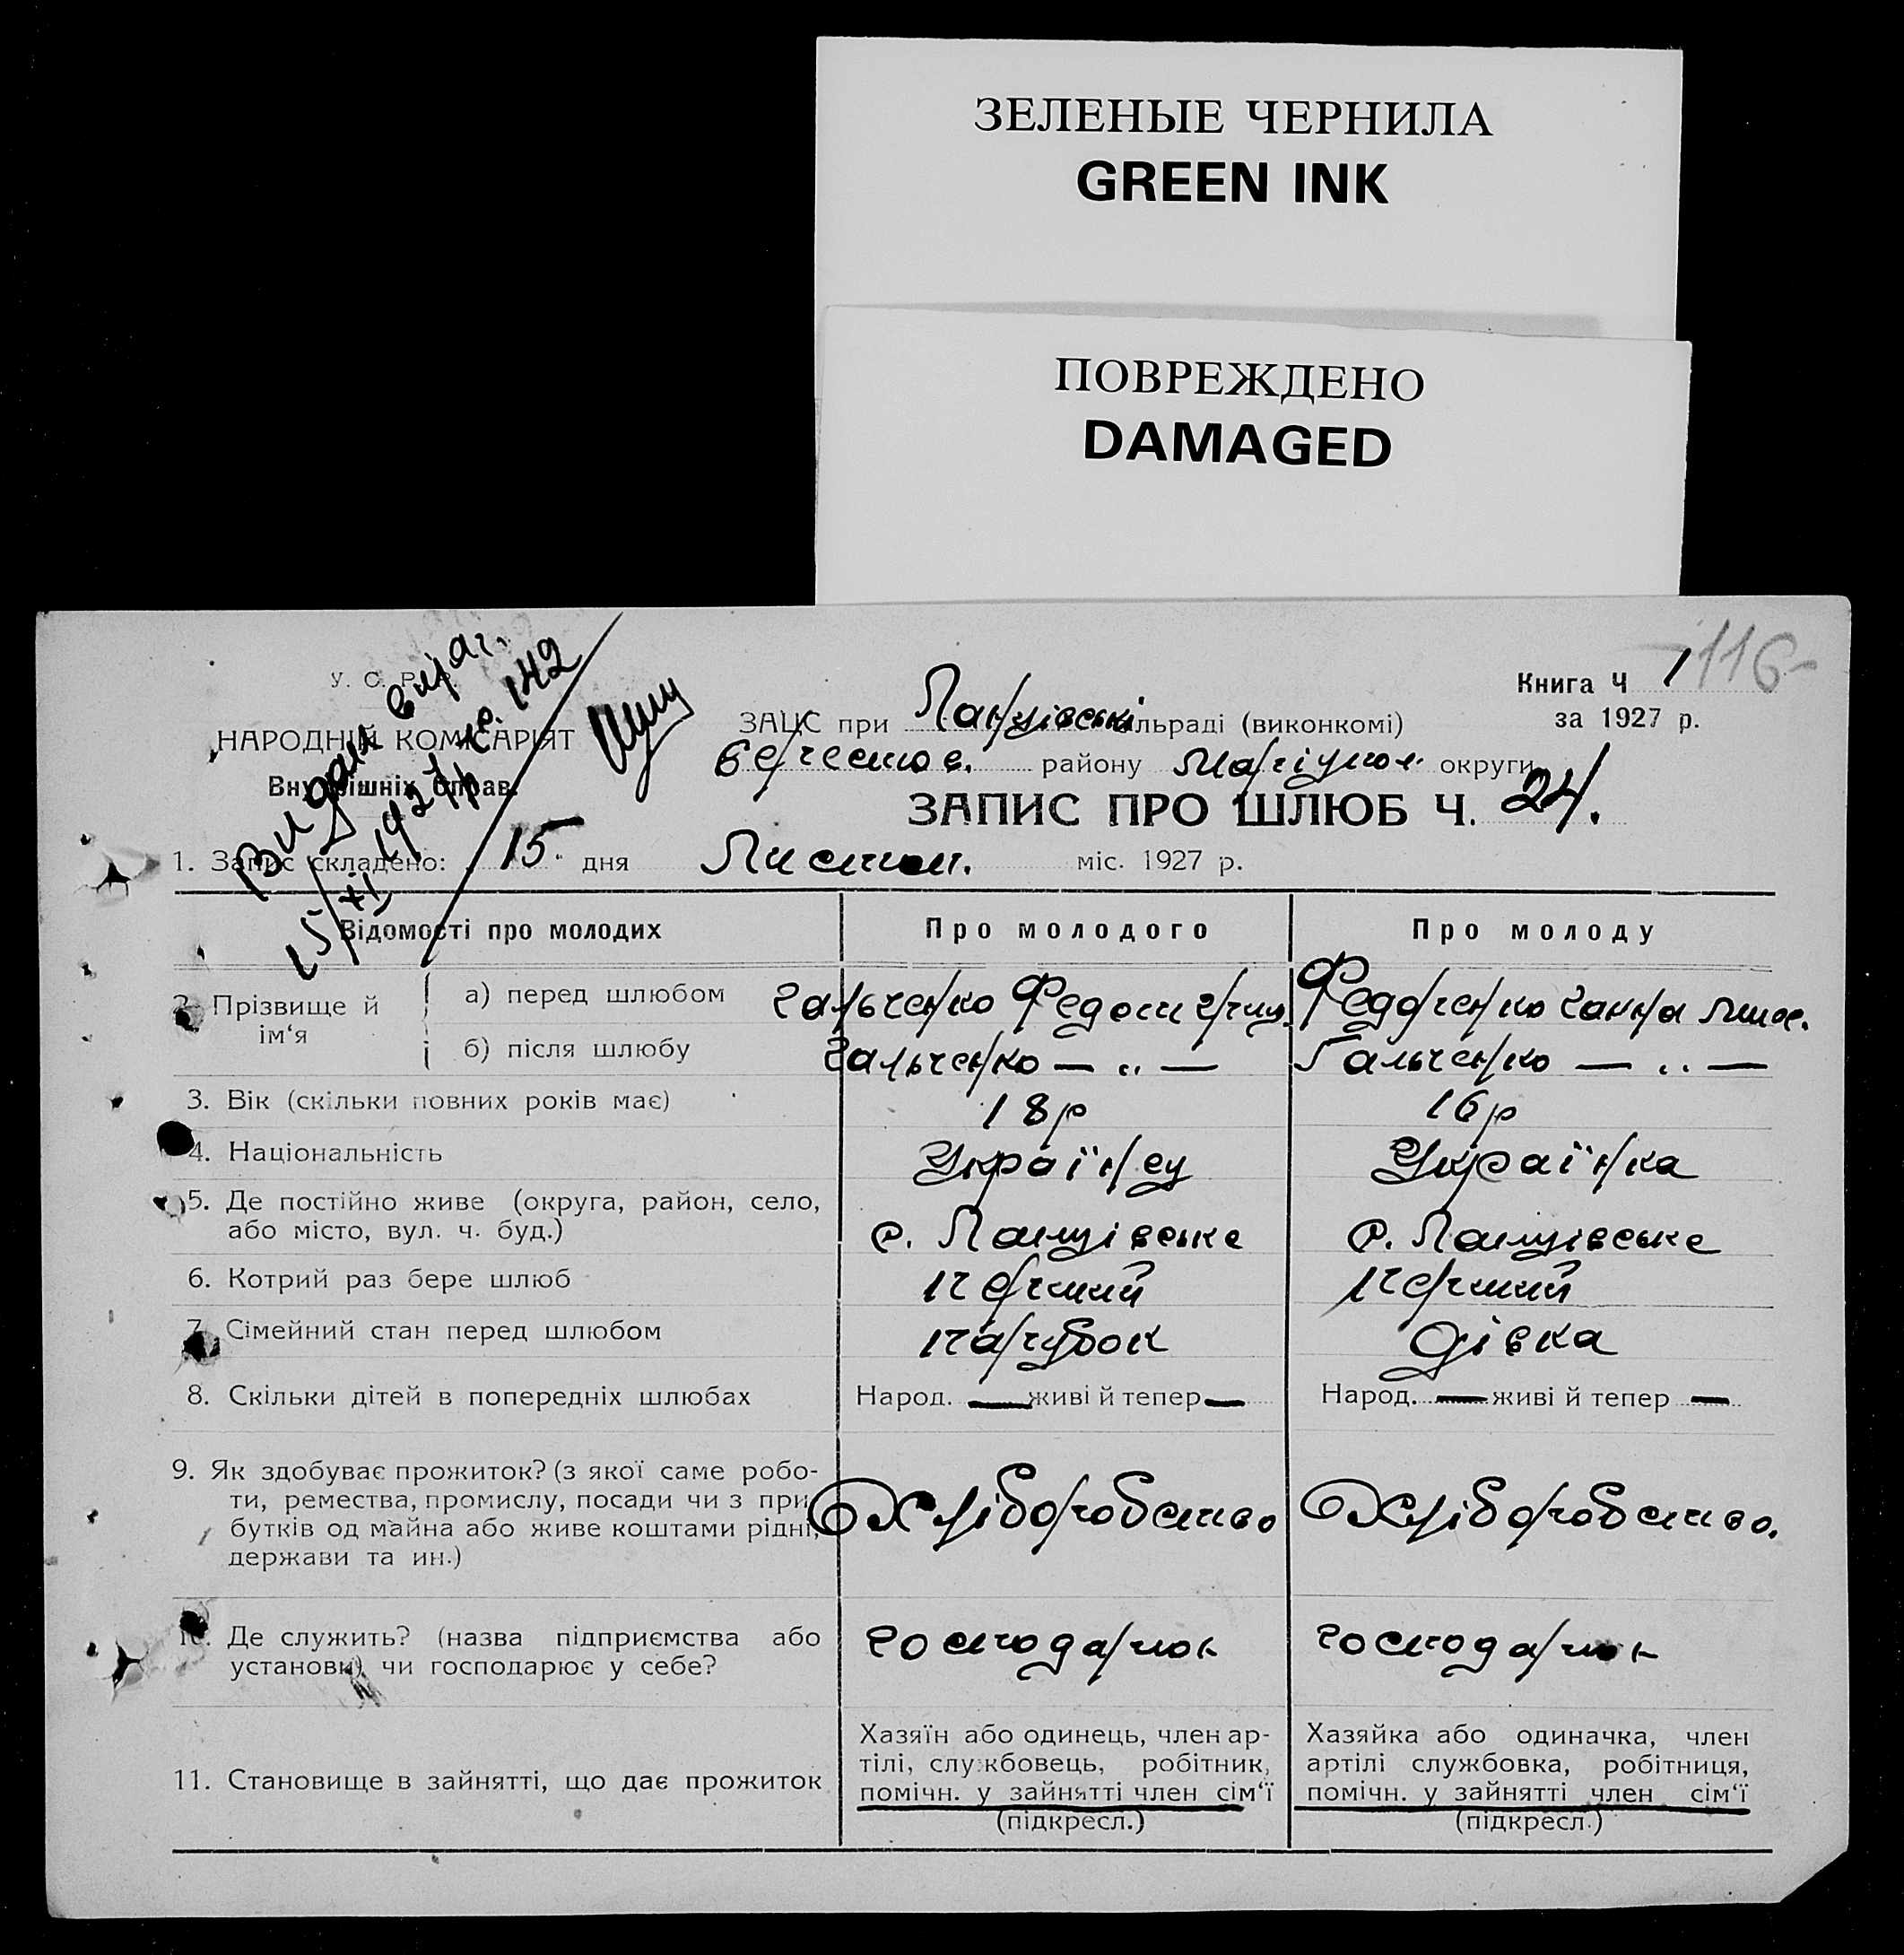 ЗЕЛЕНЫЕ ЧЕРНИЛА
GREEN INK
ПОВРЕЖДЕНО
DAMAGED
116
У. С. Р. Р.
НАРОДНІЙ КОМІСАРІЯТ
Внутрішніх Справ.
Видан витяг.
15/XI 1927 р. 142
Книга Ч 1
за 1927 р.
ЗАЦС при сільраді (виконкомі)
району Маріупол. округи
ЗАПИС ПРО ШЛЮБ Ч. 24.
1. Запис складено: 15 дня Листоп. міс. 1927 р.
Відомості про молодих Про молодого Про молоду
2. Прізвище й ім‘я
а) перед шлюбом Гальченко Федот Федорченко Ганна
б) після шлюбу Гальченко — „ — Гальченко — „ —
3. Вік (скільки повних років має) 18 р 16 р
4. Національність Українец Українка
5. Де постійно живе (округа, район, село,
або місто, вул. ч. буд.) с. Ланцівське с. Ланцівське
6. Котрий раз бере шлюб перший перший
7. Сімейний стан перед шлюбом парубок дівка
8. Скільки дітей в попередніх шлюбах Народ. — живі й тепер — Народ. — живі й тепер —
9. Як здобуває прожиток? (з якої саме робо-
ти, ремества, промислу, посади чи з при-
бутків од майна або живе коштами рідні,
держави та ин.)
Хліборобство Хліборобство.
10. Де служить? (назва підприємства або
установи) чи господарює у себе?
господарюк господарюк
11. Становище в зайнятті, що дає прожиток
Хазяїн або одинець, член ар-
тілі, службовець, робітник,
помічн. у зайнятті член сім‘ї
(підкресл.)
Хазяйка або одиначка, член
артілі службовка, робітниця,
помічн. у зайнятті член сім‘ї
(підкресл.)